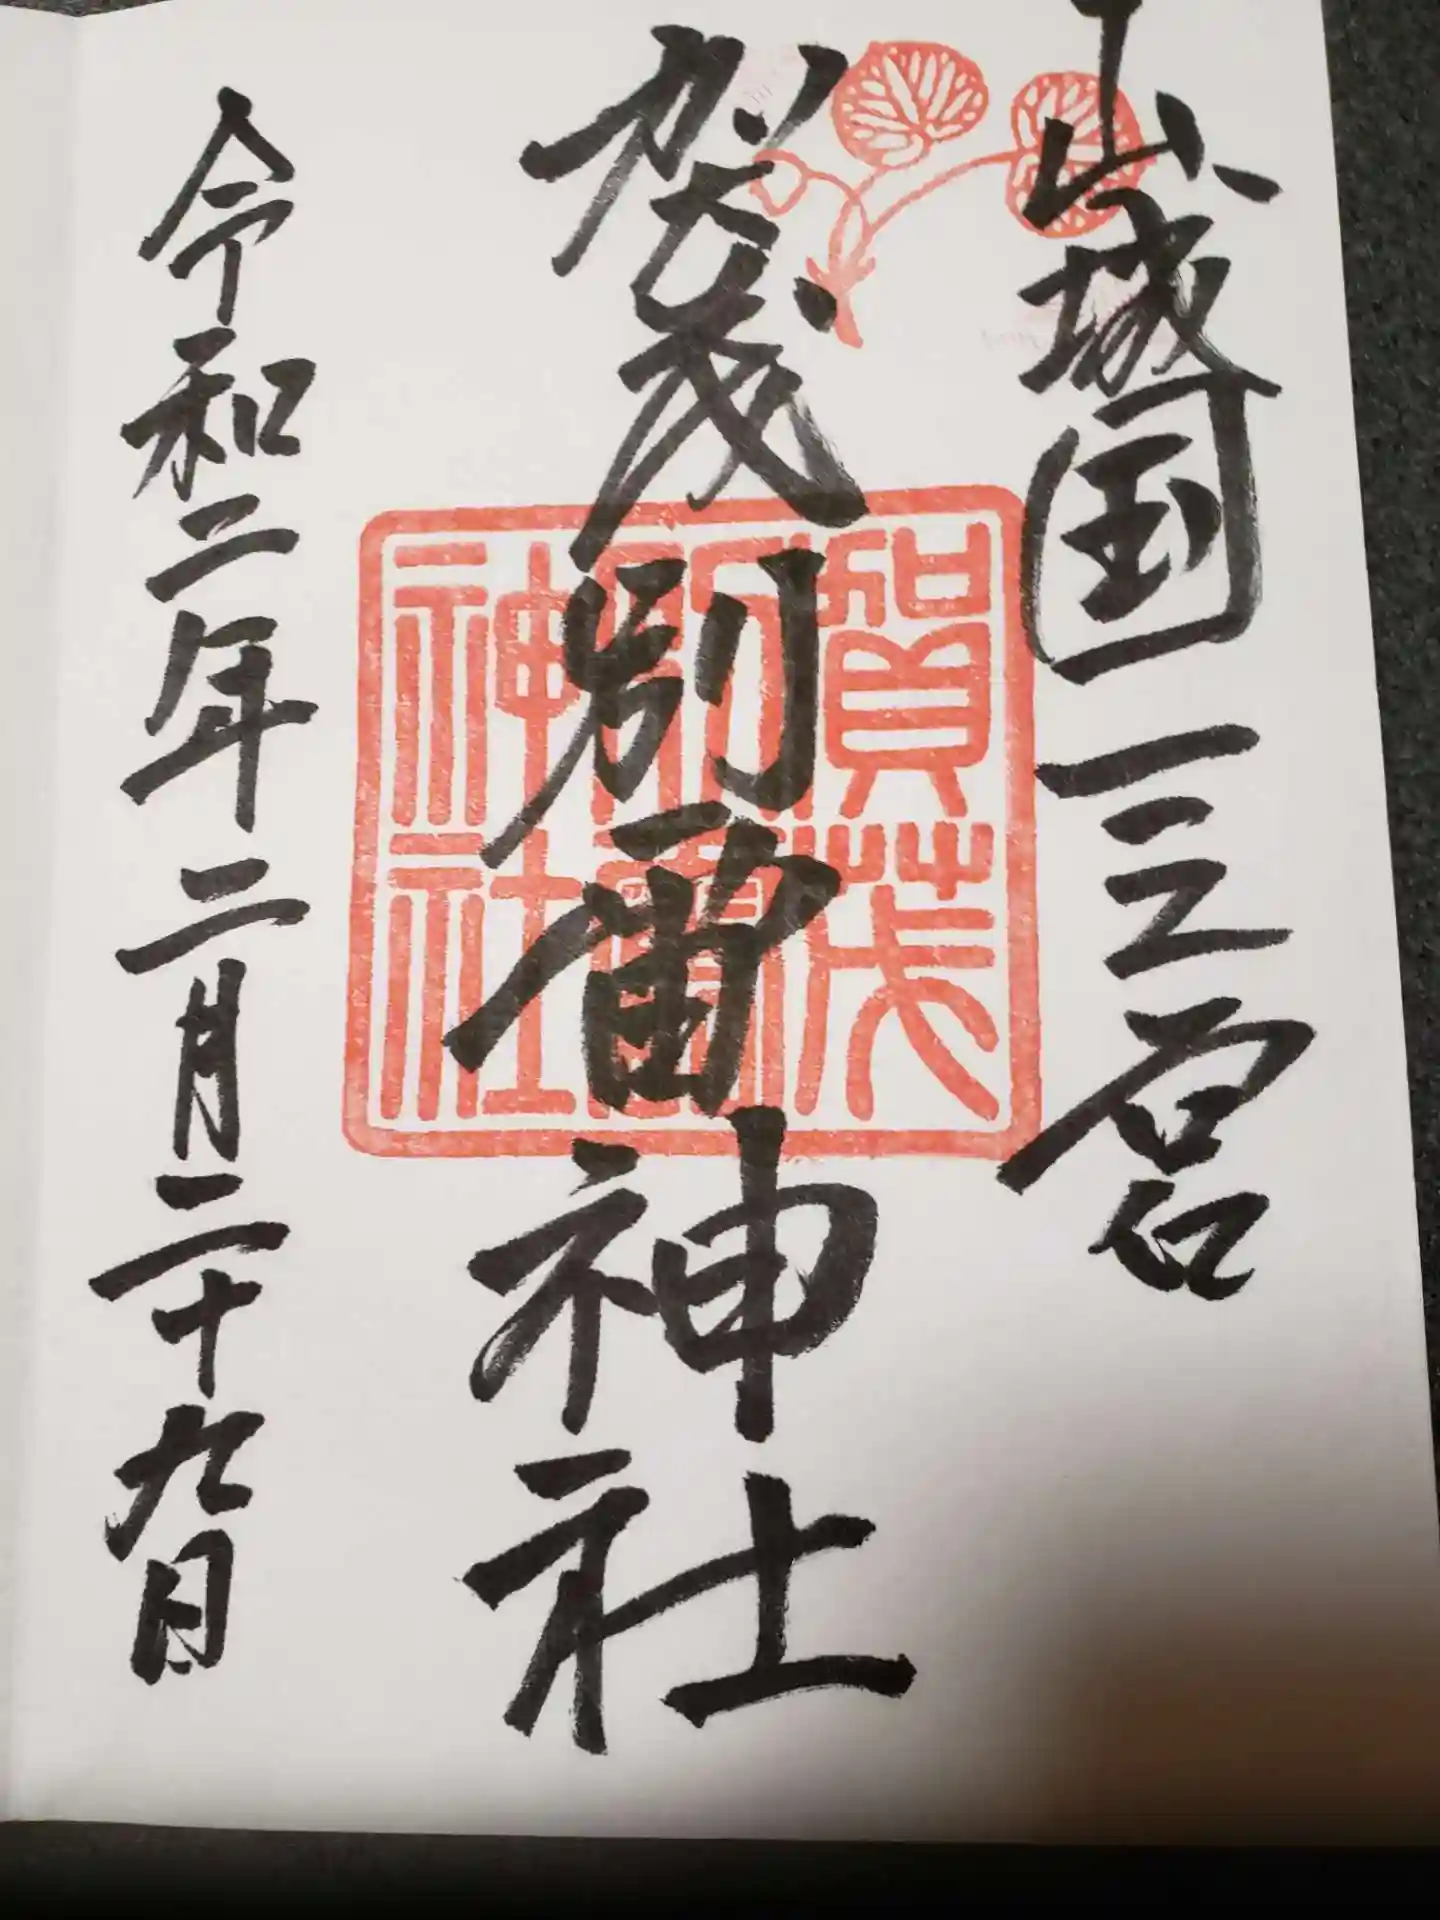 山城国一之宮
賀茂別雷神社
令和二年二月二十九日
賀茂
別雷
神社